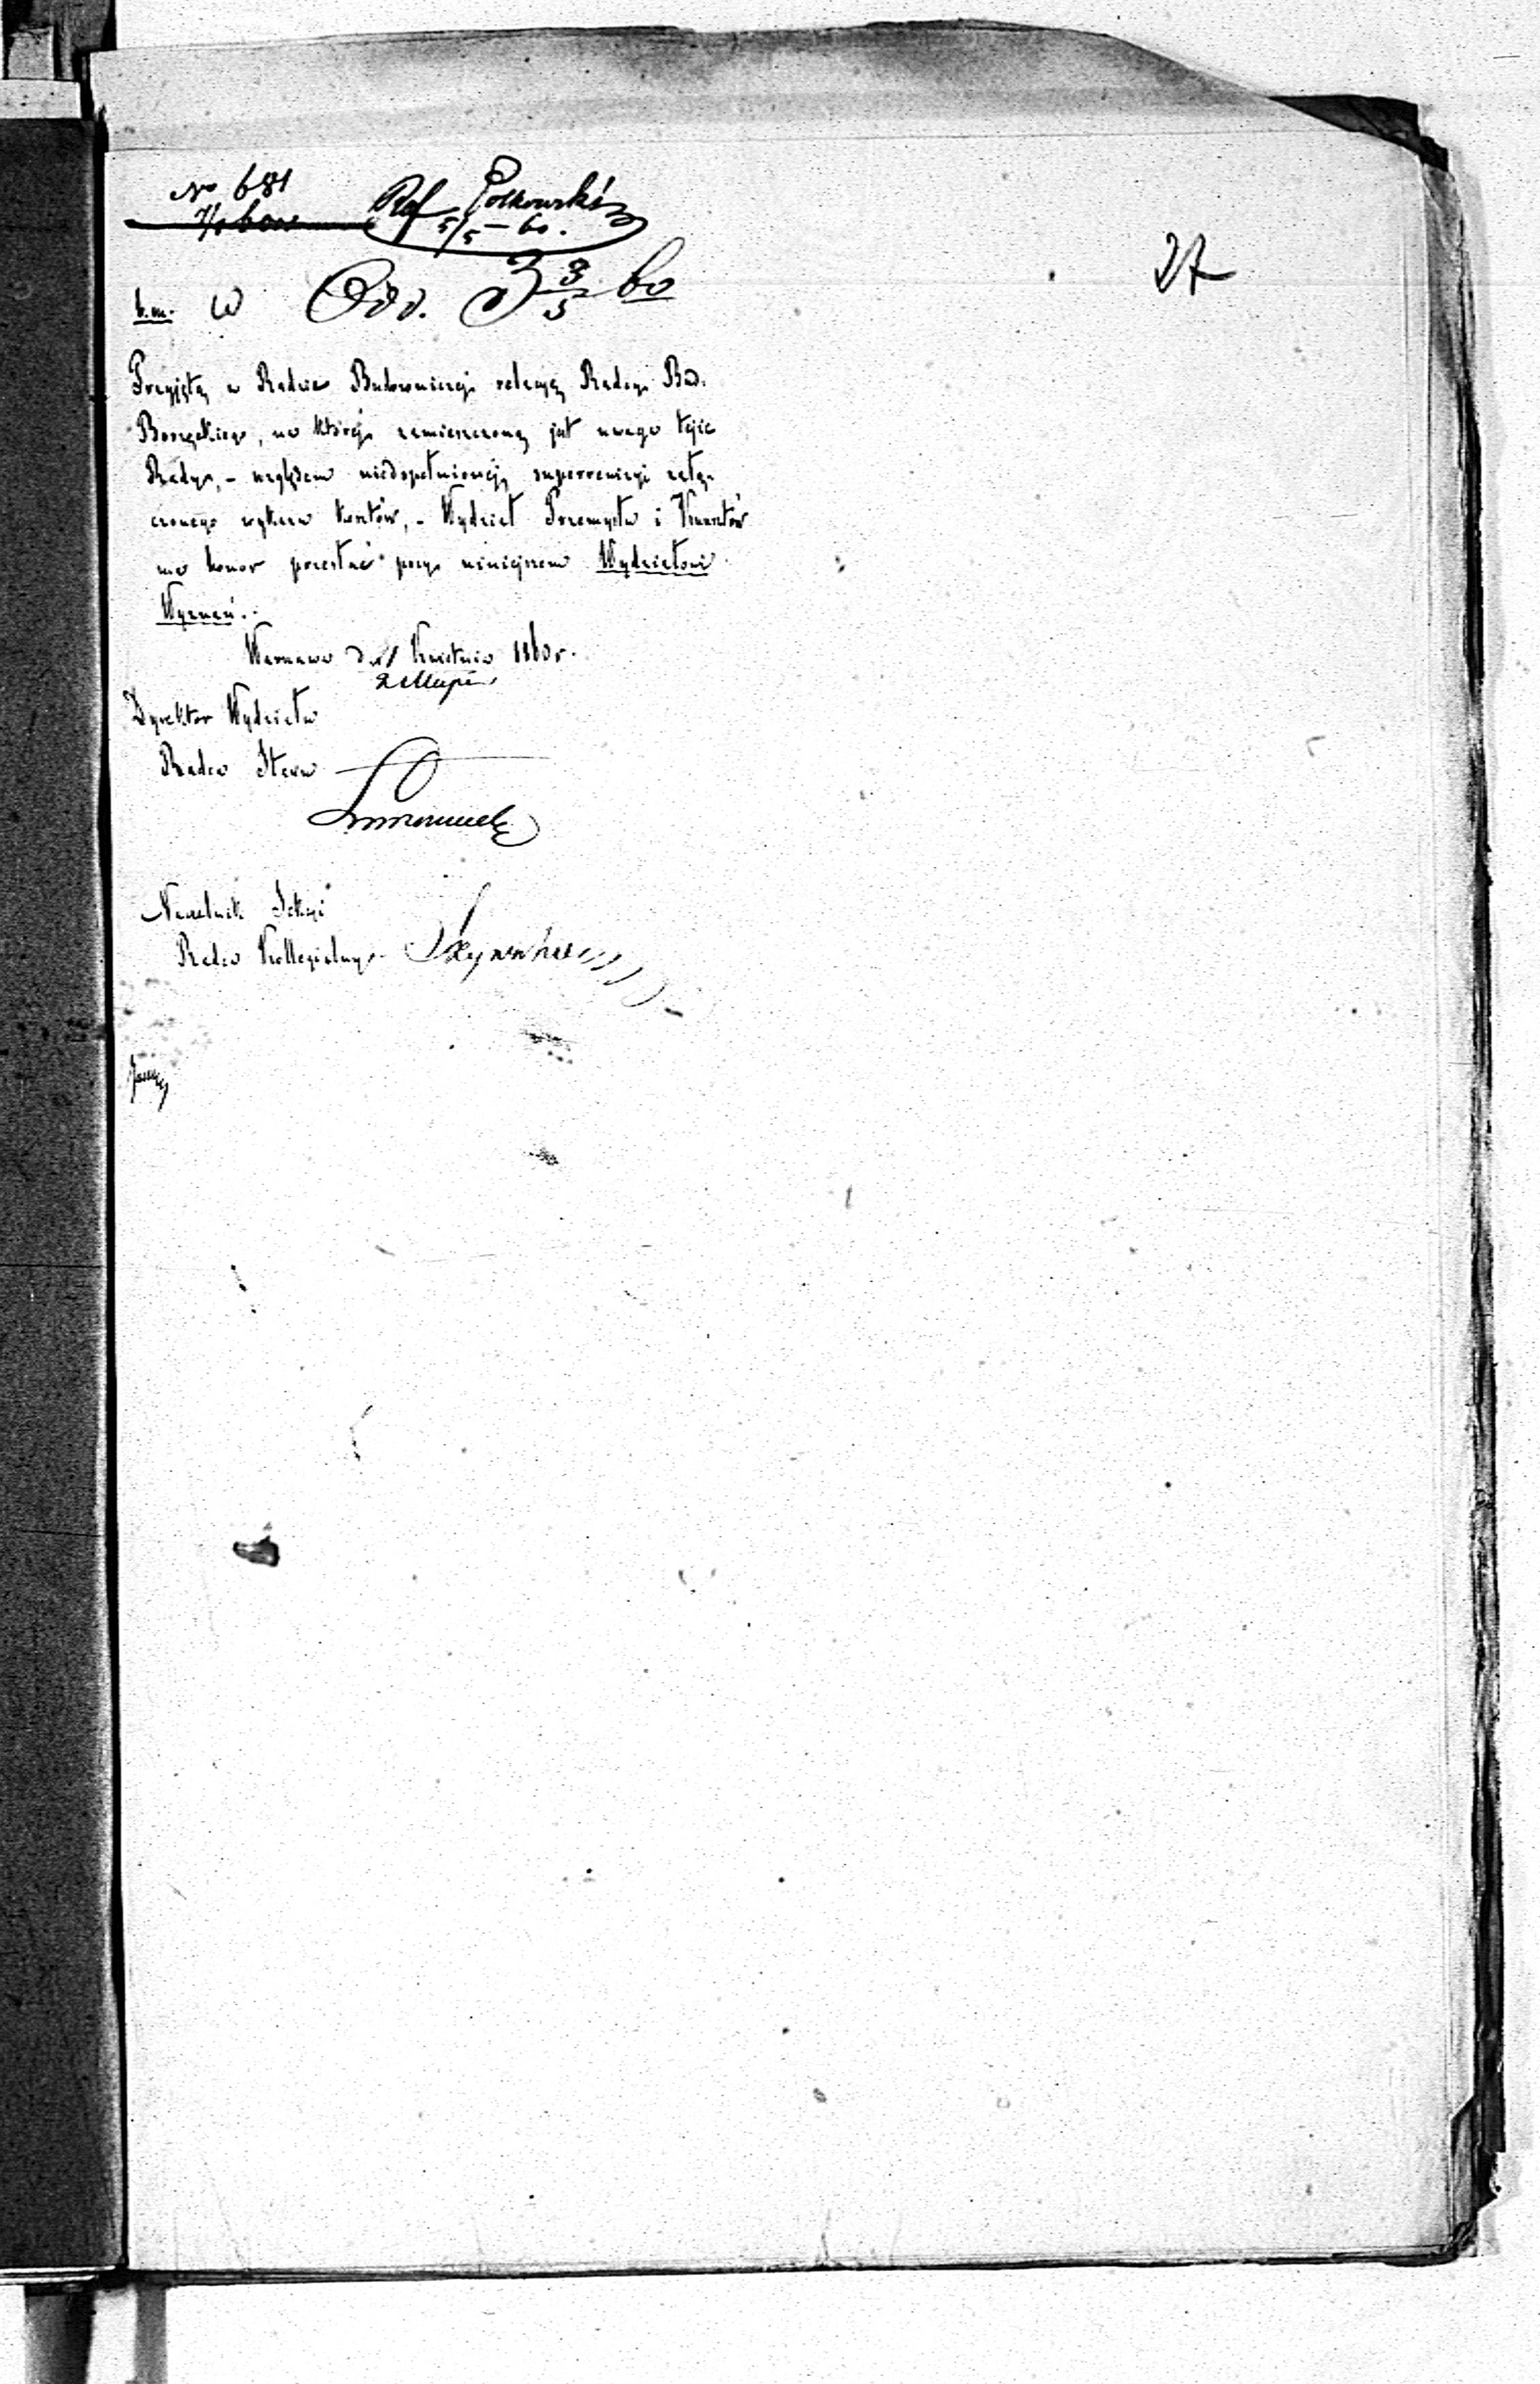 No 681
Ref Polkowski
5/5 – 60.
27
b.m. W Odd. 3 3/5 60
Przyjętą w Radzie Budowniczej relacyą Radcy Bud.
Borzęckiego, na której zamieszczoną jest uwaga tejże
Rady, – względem niedopełnionej superrewizyi załą-
czonego wykazu kosztów, – Wydział Przemysłu i Kunsztów
ma honor przesłać przy niniejszem Wydziałowi
Wyznań.
Warszawa d. Kwietnia 1860 r.
2 Maja
Dyrektor Wydziału
Radca Stanu
Naczelnik Sekcyi
Radca Kollegialny